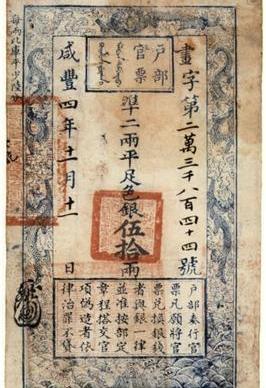 戶部
官票
畫字第二萬三千八百四十四號
準二兩平足色銀伍拾兩
咸豐四年十一月十一日
戶部奏行官
票凡願將官
票兌換銀錢
者與銀一律
並准按部定
章程搭交官
項偽造者依
律治罪不貸
每兩比庫平少陸